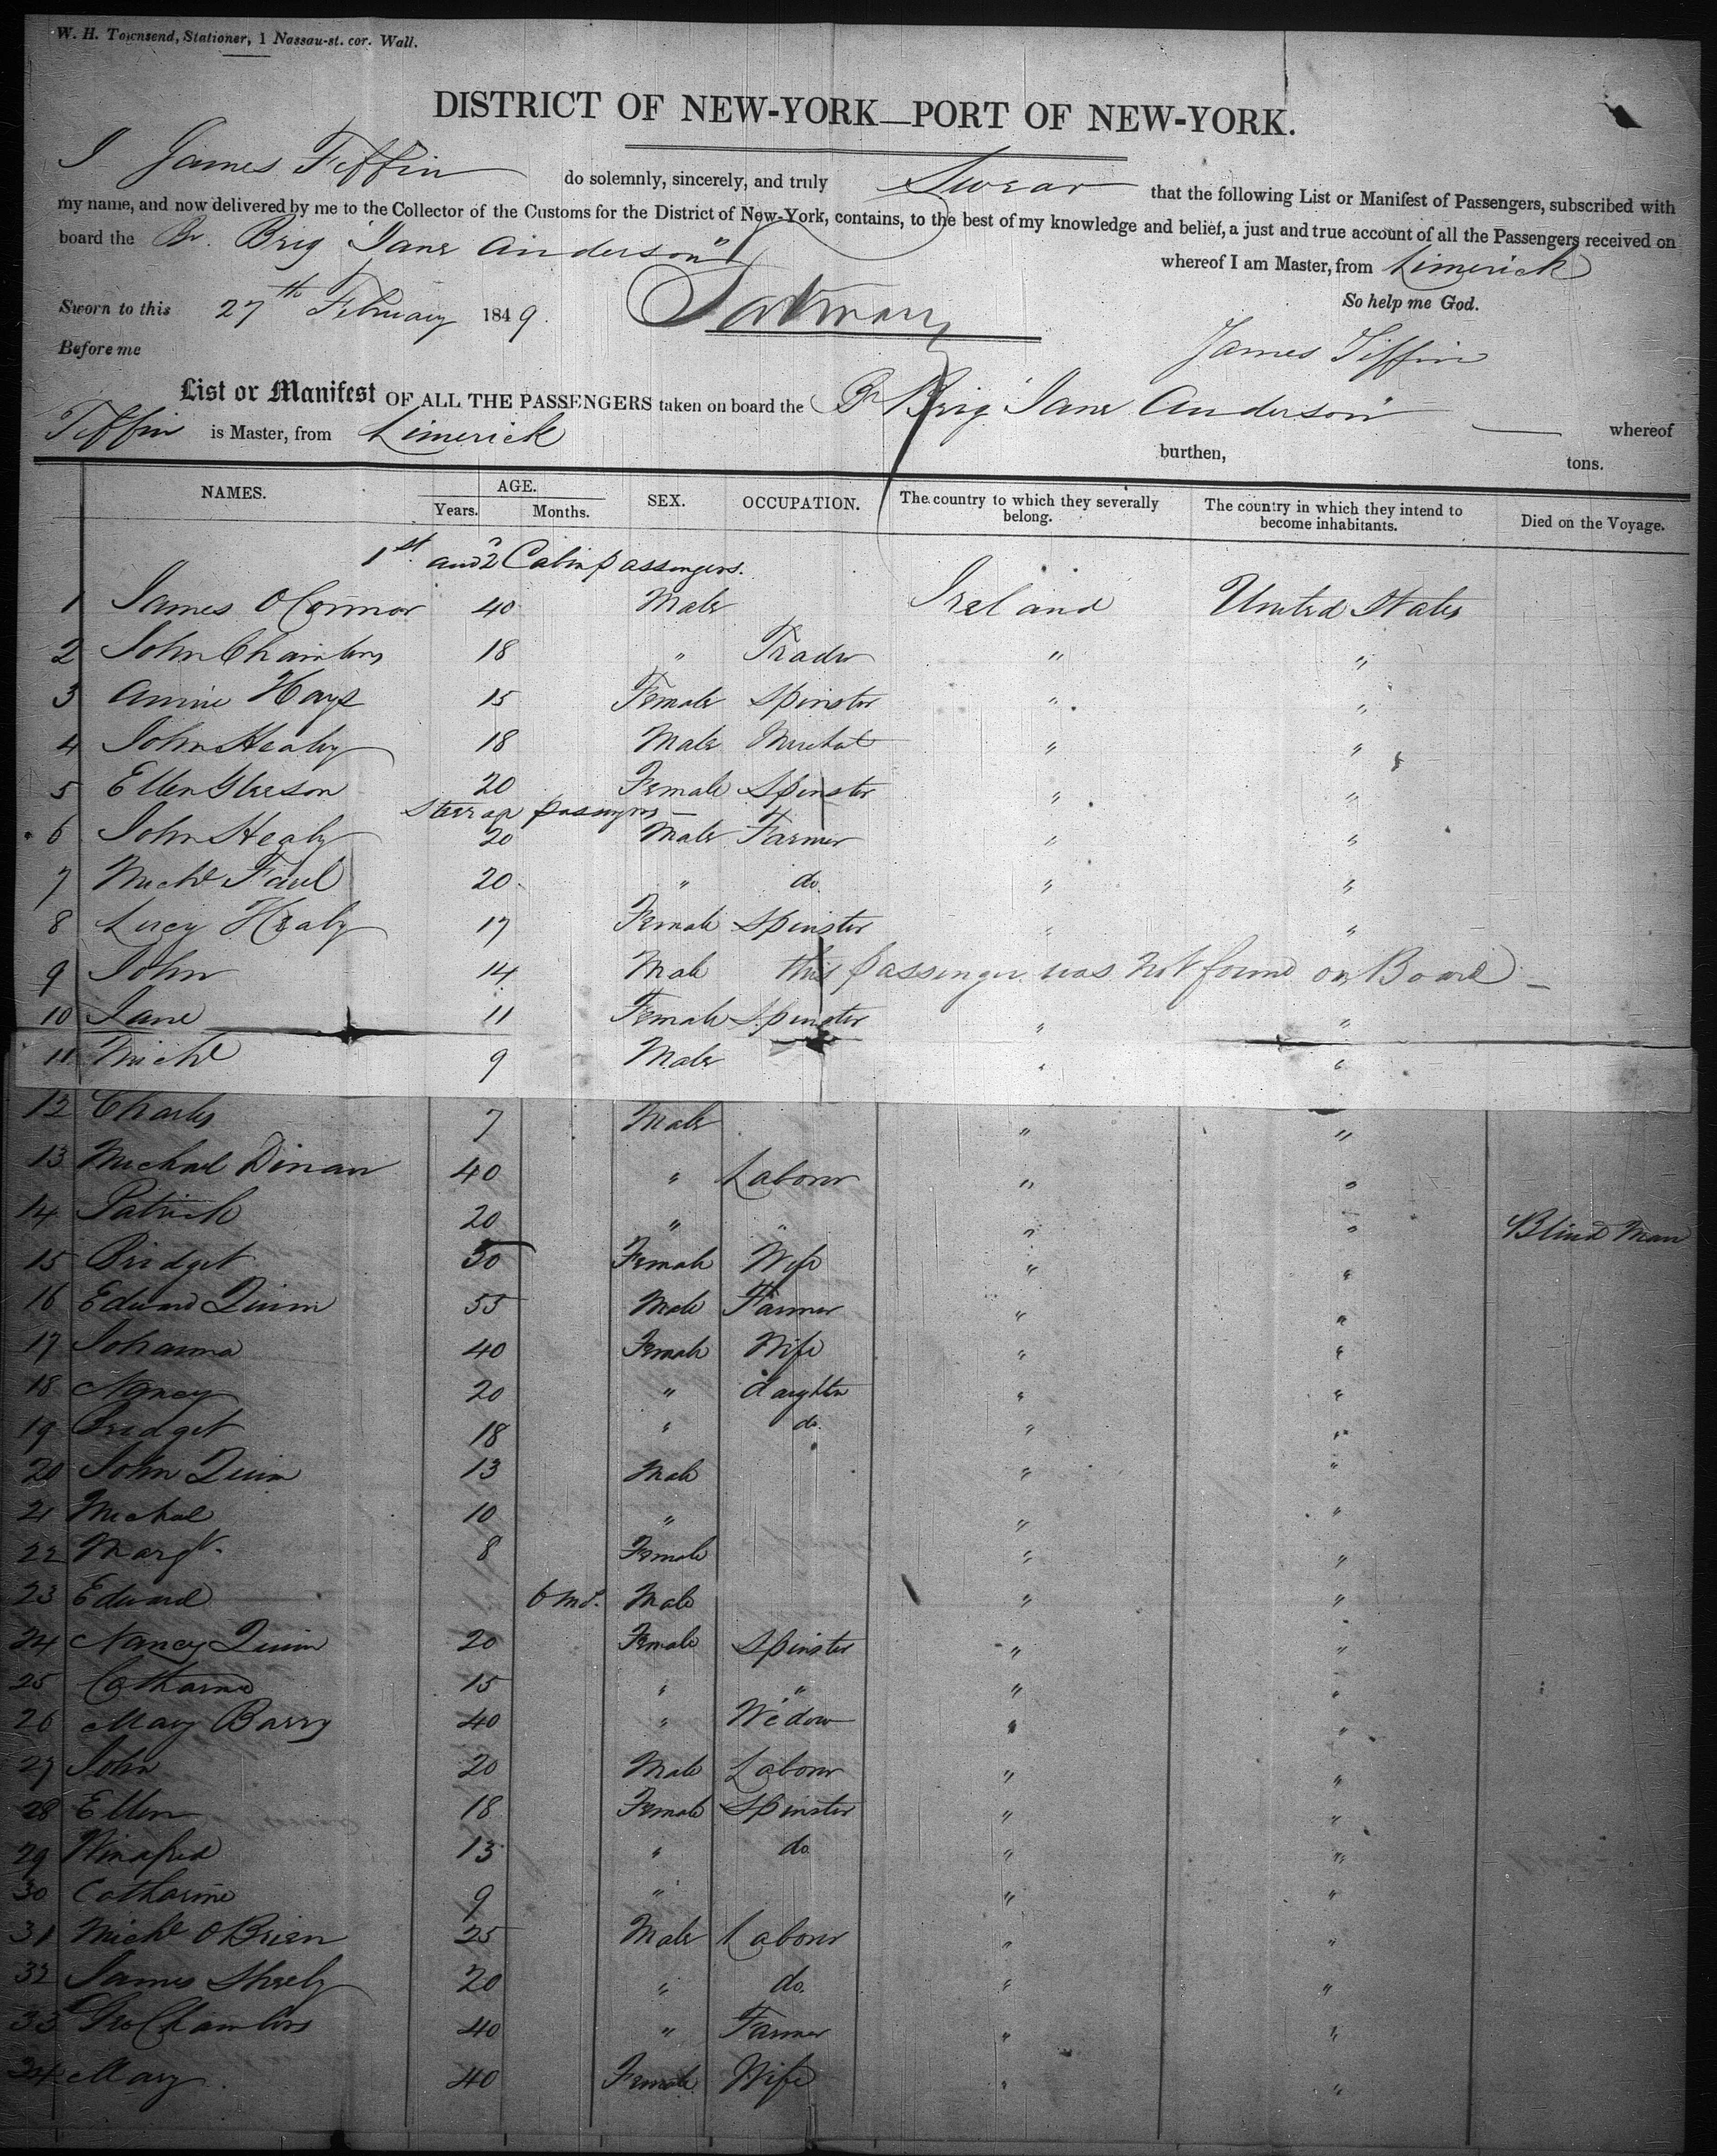 W. H. Townsend, Stationer, 1 Nassau-st. cor. Wall.
DISTRICT OF NEW-YORK—PORT OF NEW-YORK.
I James Tiffin do solemnly, sincerely, and truly Swear that the following List or Manifest of Passengers, subscribed with
my name, and now delivered by me to the Collector of the Customs for the District of New-York, contains, to the best of my knowledge and belief, a just and true account of all the Passengers received on
board the Br. Brig "Jane Anderson" whereof I am Master, from Limerick
So help me God.
Sworn to this 27th February 1849.
James Tiffin
Before me
List or Manifest OF ALL THE PASSENGERS taken on board the Br Brig "Jane Anderson" whereof
Tiffin is Master, from Limerick burthen, tons.
NAMES. AGE. Years. Months. SEX. OCCUPATION. The country to which they severally belong. The country in which they intend to become inhabitants. Died on the Voyage.
1st and 2 Cabin passengers.
1 James O Connor 40 Male Ireland United States
2 John Chambers 18 " Trader " "
3 Annie Hays 15 Female Spinster " "
4 John Healy 18 Male " "
5 Ellen Gleeson 20 Female Spinster " "
Steerage passengers
6 John Healy 20 Male Farmer " "
7 Michl 20 " do. " "
8 Lucy Healy 17 Female Spinster " "
9 John 14 Male this passenger was not found on Board
10 Jane 11 Female Spinster " "
11 Michl 9 Male " "
12 Charles 7 Male " "
13 Michael Dinan 40 " Laborer " "
14 Patrick 20 " " " " Blind Man
15 Bridget 50 Female Wife " "
16 Edward Quinn 55 Male Farmer " "
17 Johanna 40 Female Wife " "
18 Nancy 20 " daughter " "
19 Bridget 18 " do. " "
20 John Quinn 13 Male " "
21 Michael 10 " " "
22 Margt. 8 Female " "
23 Edward 6 ms. Male " "
24 Nancy Quinn 20 Female Spinster " "
25 Catharine 15 " " " "
26 Mary Barry 40 " Widow " "
27 John 20 Male Laborer " "
28 Ellen 18 Female Spinster " "
29 Winafred 13 " do " "
30 Catharine 9 " " "
31 Michl O Brien 25 Male Laborer " "
32 James Sheely 20 " do. " "
33 Geo Chambers 40 " Farmer " "
34 Mary 40 Female Wife " "